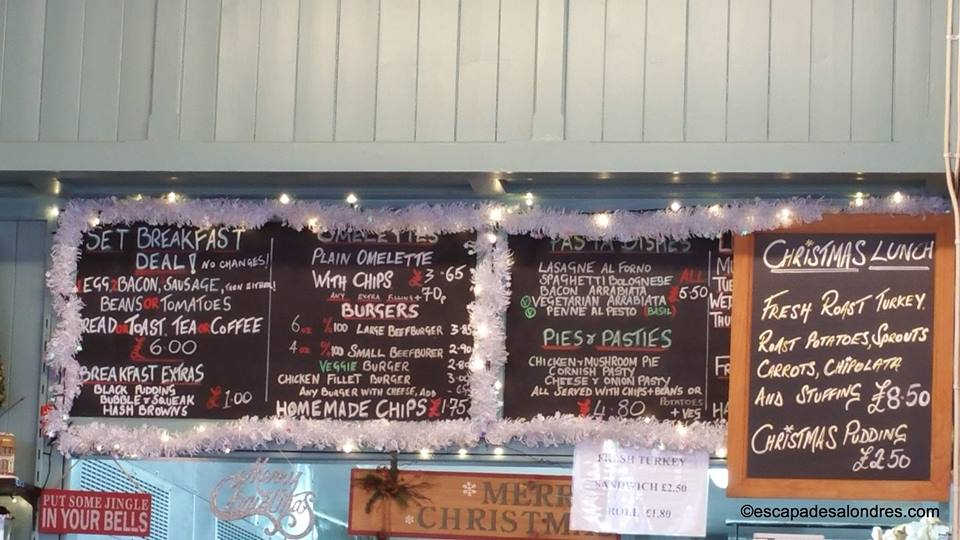 SET BREAKFAST
DEAL! NO CHANGES!
EGG, 2 BACON, SAUSAGE,
BEANS OR TOMATOES
READ OR TOAST. TEA OR COFFEE
£6.00
BREAKFAST EXTRAS
BLACK PUDDING
BUBBLE & SQUEAK
HASH BROWNS
£1.00
OMELETTES
PLAIN OMELETTE
WITH CHIPS £3.65
ANY EXTRA FILLING + 70p
BURGERS
6oz %100 LARGE BEEFBURGER
4oz %100 SMALL BEEFBURER 2.90
VEGGIE BURGER
CHICKEN FILLET BURGER
ANY BURGER WITH CHEESE, ADD
HOMEMADE CHIPS £1.75
PASTA DISHES
LASAGNE AL FORNO
SPAGHETTI BOLOGNESE ALL
BACON ARRABIATA £5.50
V VEGETARIAN ARRABIATA
V PENNE AL PESTO (BASIL)
PIES & PASTIES
CHICKEN & MUSHROOM PIE
CORNISH PASTY
CHEESE & ONION PASTY
ALL SERVED WITH CHIPS & BEANS OR
£4.80 POTATOES
+ VEG
CHRISTMAS LUNCH
FRESH ROAST TURKEY.
ROAST POTATOES, SPROUTS
CARROTS, CHIPOLATA
AND STUFFING £8.50
CHRISTMAS PUDDING
£2.50
PUT SOME JINGLE
IN YOUR BELLS
Merry
Christmas
MERR
CHRISTM
FRESH TURKEY
SANDWICH £2.50
ROLL £1.80
©escapadesalondres.com